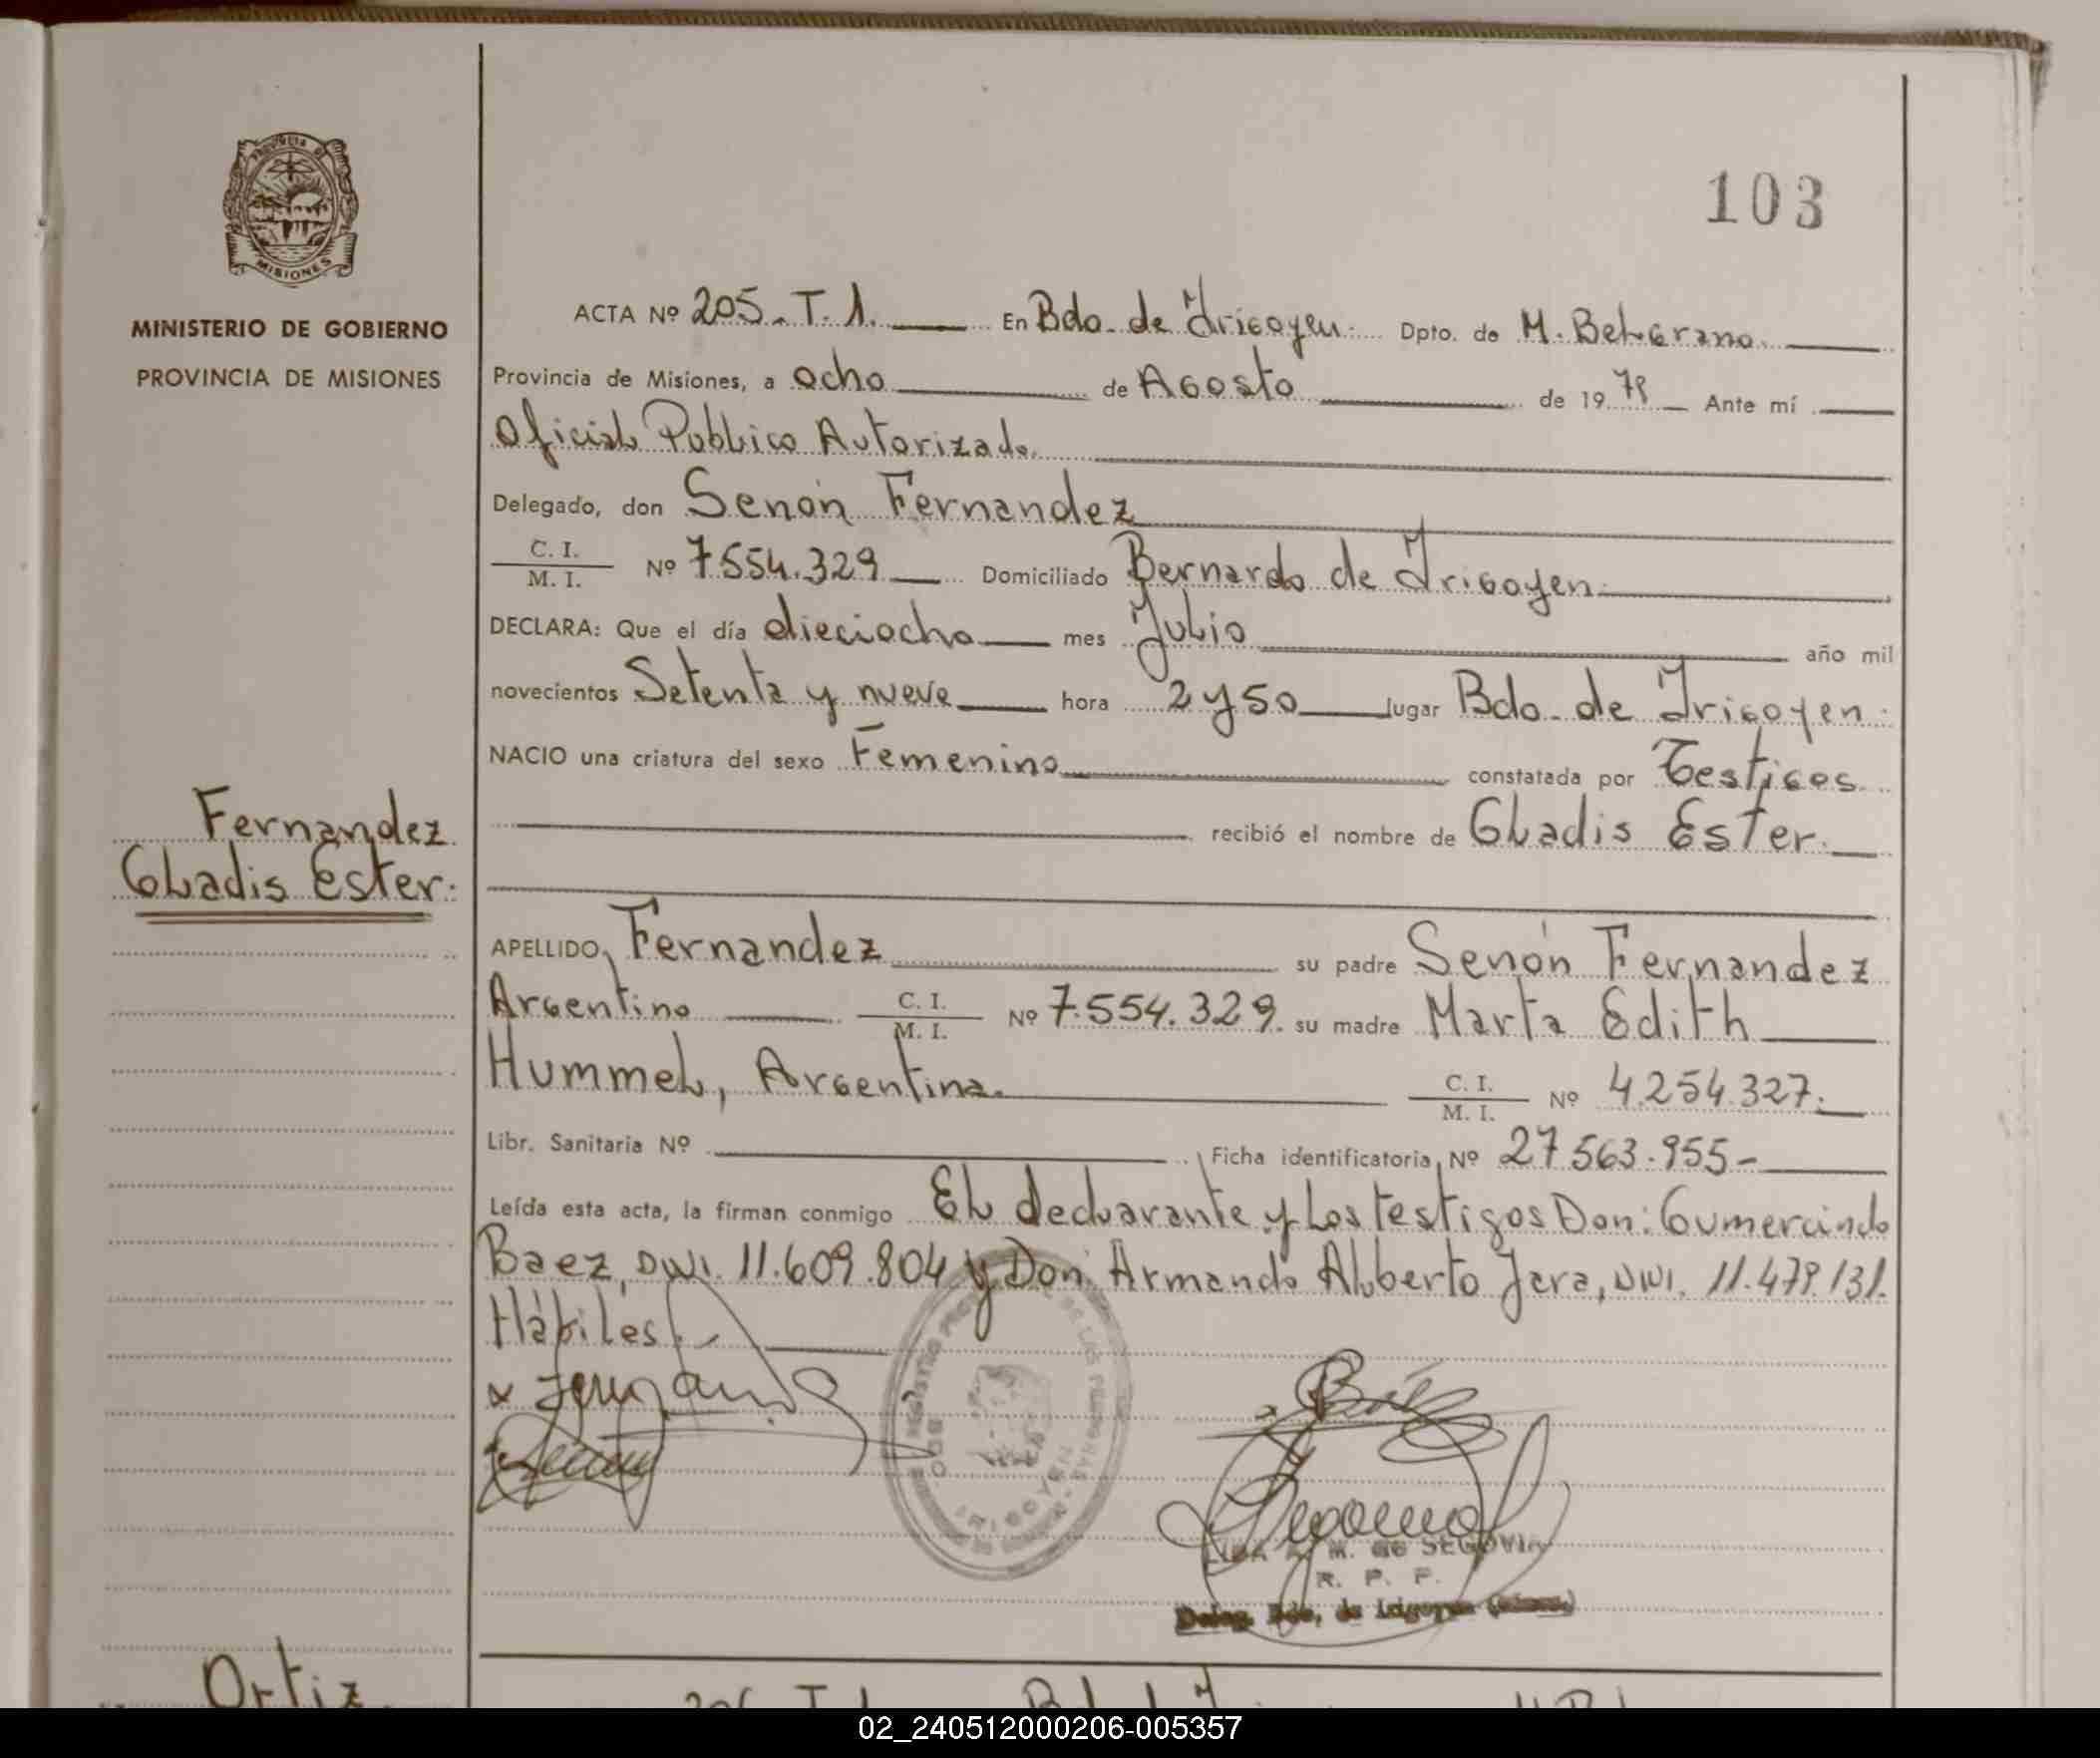 103
PROVINCIA DE
MISIONES
MINISTERIO DE GOBIERNO
PROVINCIA DE MISIONES
ACTA Nº 205. T. 1. En Bdo. de Irigoyen. Dpto. de M. Belgrano.
Provincia de Misiones, a ocho de Agosto de 1979 Ante mí
Oficial Publico Autorizado.
Delegado, don Senón Fernandez
C. I.
M. I. Nº 7554.329 Domiciliado Bernardo de Irigoyen.
DECLARA: Que el día dieciocho mes Julio año mil
novecientos Setenta y nueve hora 2 y 50 lugar Bdo. de Irigoyen.
NACIO una criatura del sexo Femenino constatada por Testigos.
recibió el nombre de Gladis Ester.
Fernandez
Gladis Ester.
APELLIDO, Fernandez su padre Senón Fernandez
Argentino C. I.
M. I. Nº 7.554.329. su madre Marta Edith
Hummel, Argentina. C. I.
M. I. Nº 4.254.327.
Libr. Sanitaria Nº Ficha identificatoria, Nº 27.563.955-
Leída esta acta, la firman conmigo El declarante y los testigos Don: Gumercindo
Baez, DNI. 11.609.804 y Don: Armando Alberto Jara, DNI. 11.479.131.
Hábiles.
REGISTRO DE LAS PERSONAS
BDO. DE IRIGOYEN
M. de SEGOVIA
R. P. P.
Deleg. Bdo. de Irigoyen
Ortiz
02_240512000206-005357